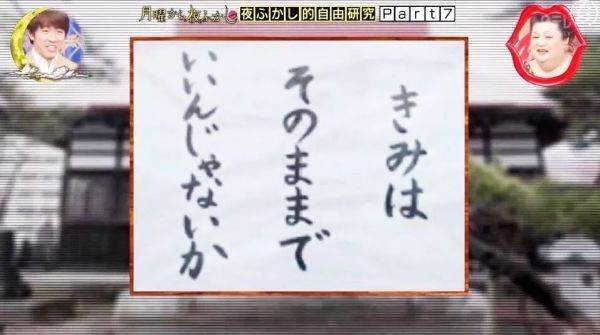 月曜から夜ふかし 夜ふかし的自由研究 Part7
きみは
そのままで
いいんじゃないか